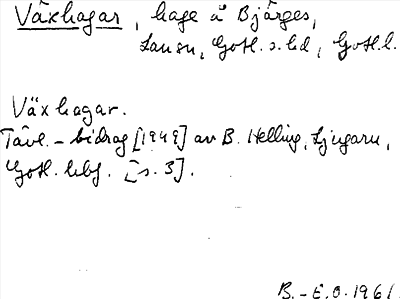 Växhagar, hage å Bjärges,
Lau sn, Gotl. s. hd, Gotl. l.
Växhagar.
Tävl.-bidrag [1949] av B. Helling, Ljugarn,
Gotl. hbf. [s. 3].
B.-E. O. 1961.